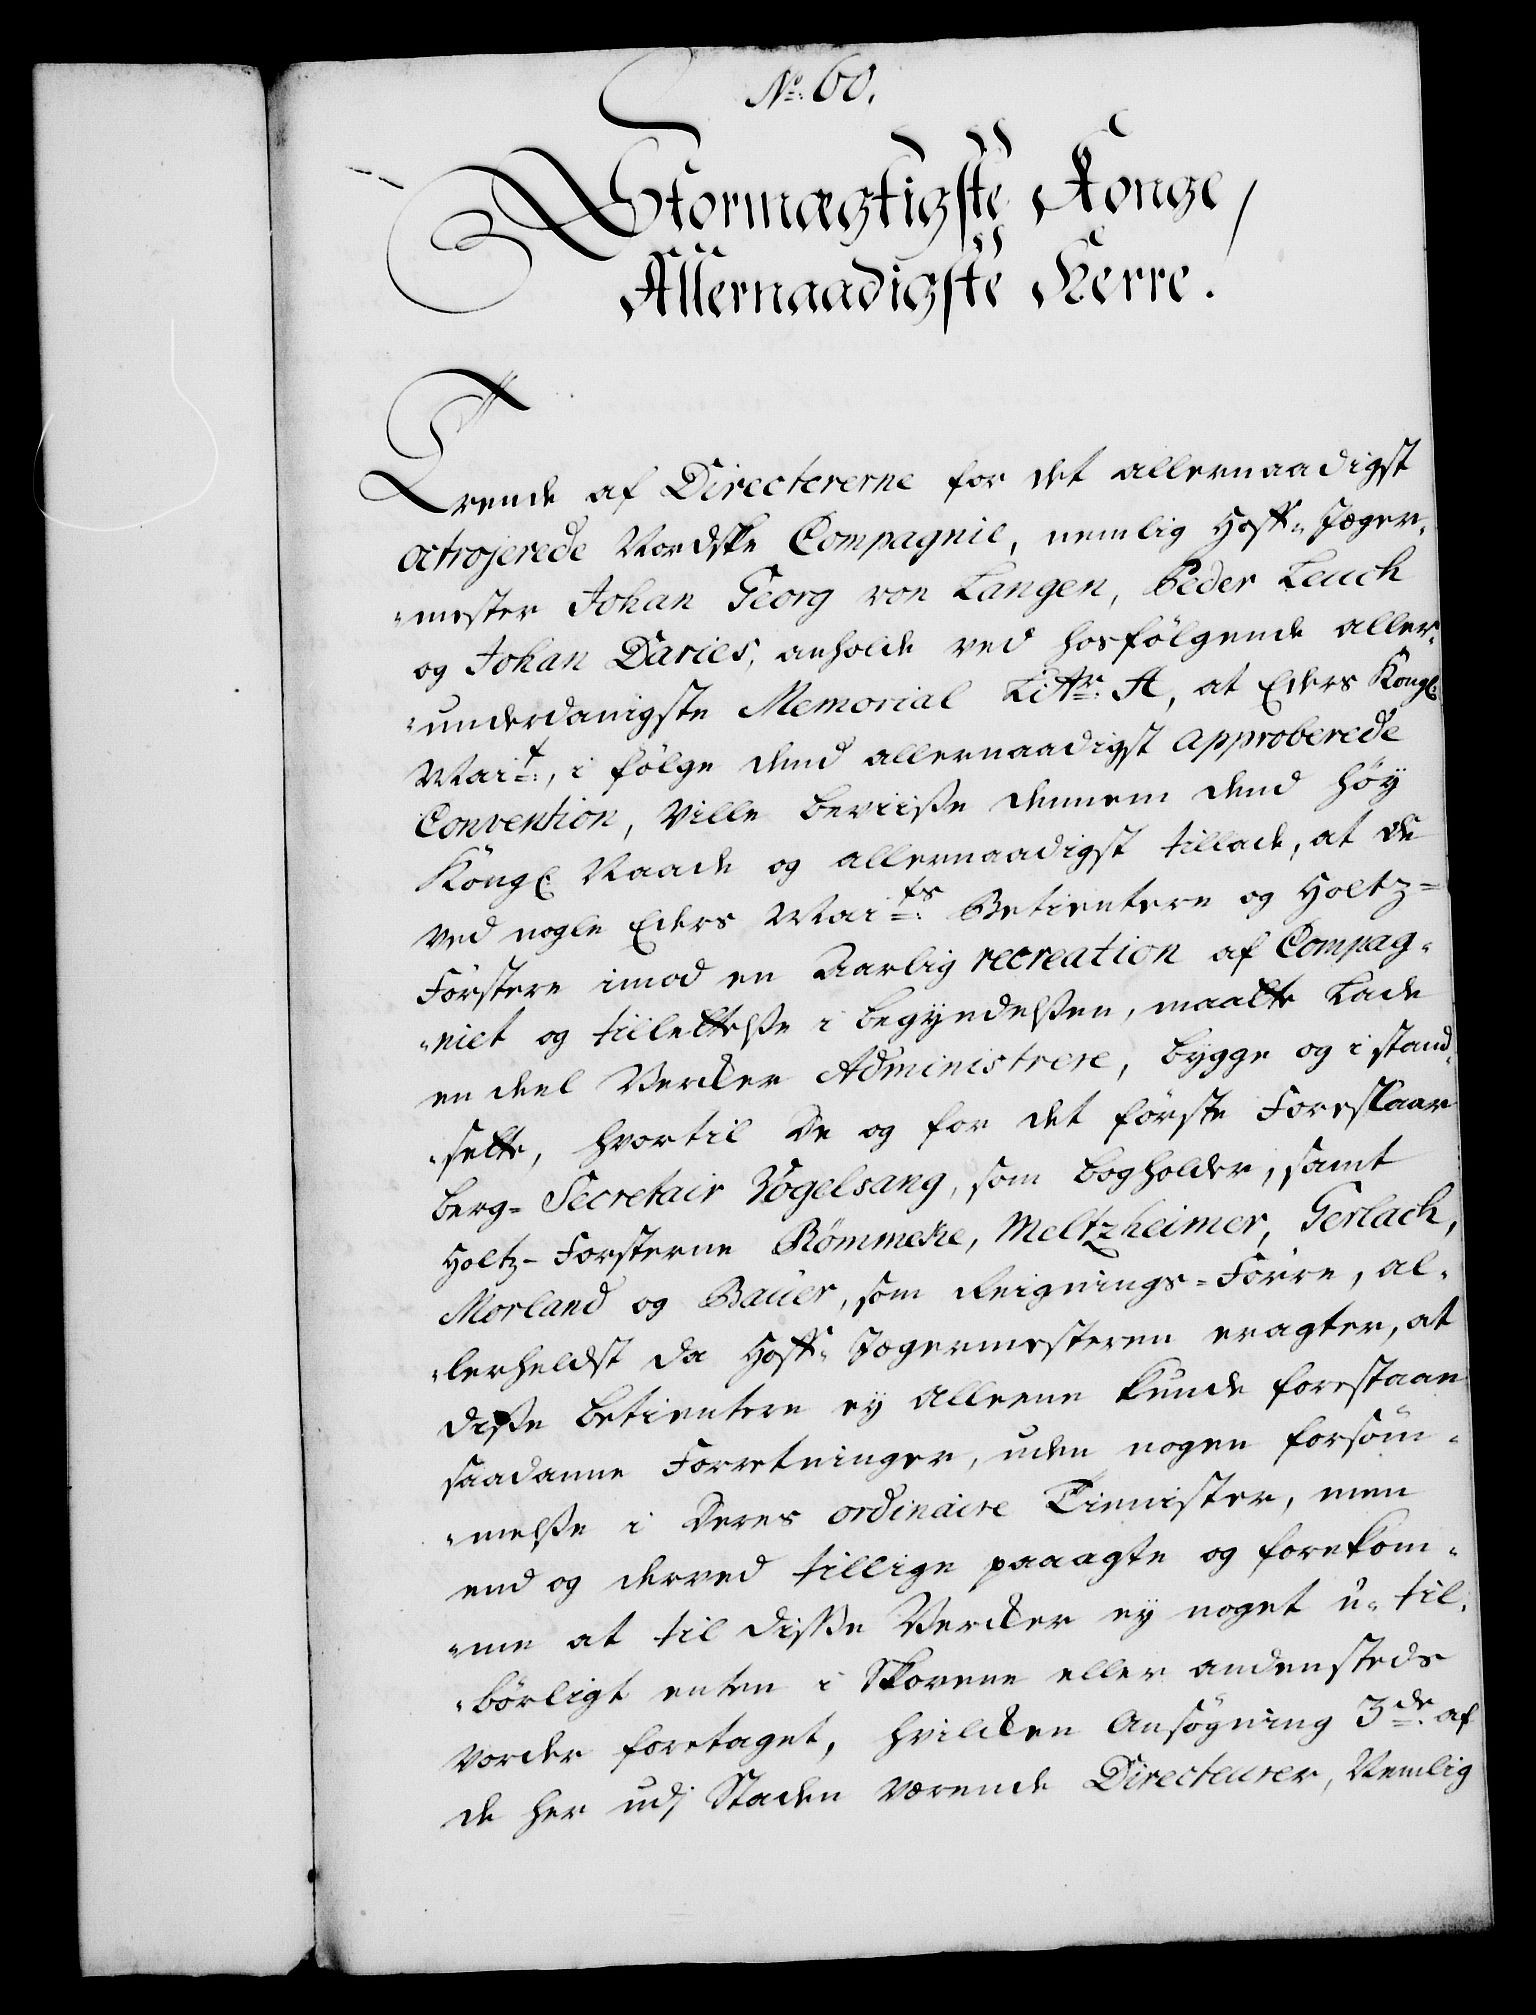 No: 60.
Stormægtigste Konge,
Allernaadigste Herre.
Trende af Directererne for det allernaadigst
octrojerede Nordske Compagnie, nemlig Hoff-Jæger-
-mester Johan Georg von Langen, Peder Leuch
og Johan Daries, anholde ved hosfölgende aller-
-underdanigste Memorial Littr: A, at Eders Kongl:
Mait:, i fölge dend allernaadigst approberede
Convention, Ville beviisse dennem dend höy
Köngl: Naade og allernaadigst tillade, at de
ved nogle Eders Maits: Betientere og Holtz=
Förstere imod en Aarlig recreation af Compag-
-niet og tillettelsse i begyndelssen, maatte Lade
en deel Vercker Administrere, bygge og i stand-
-sette, hvortil De og for det förste Foreslaar
berg= Secretair Vogelsang, som bogholder, samt
Holtz-Forsterne Römmeke, Meltzheimer, Gerlach,
Morland og Baüer, som Reignings=Förre, al-
-lerheldst da Hoff-Jægermesteren eragter, at
disse betientere ey alleene kunde forestaae
saadanne Forretninger, uden nogen forsöm-
-melsse i deres ordinaire Tienister, men
end og derved tillige paaagte og forekom-
-me at til disse Vercker ey noget u-til-
-börligt enten i Skovene eller andensteds
vorder foretaget, hvilcken Ansögning 3de: af
de her udj Staden værende Directeurer, Nemlig